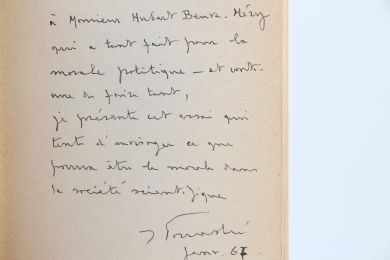 à Monsieur Hubert Beuve-Méry
qui a tant fait pour la
morale politique – et conti-
nue d'en faire tant,
je présente cet essai qui
tente d'envisager ce que
pourra être la morale dans
la société scientifique
Janv. 67.